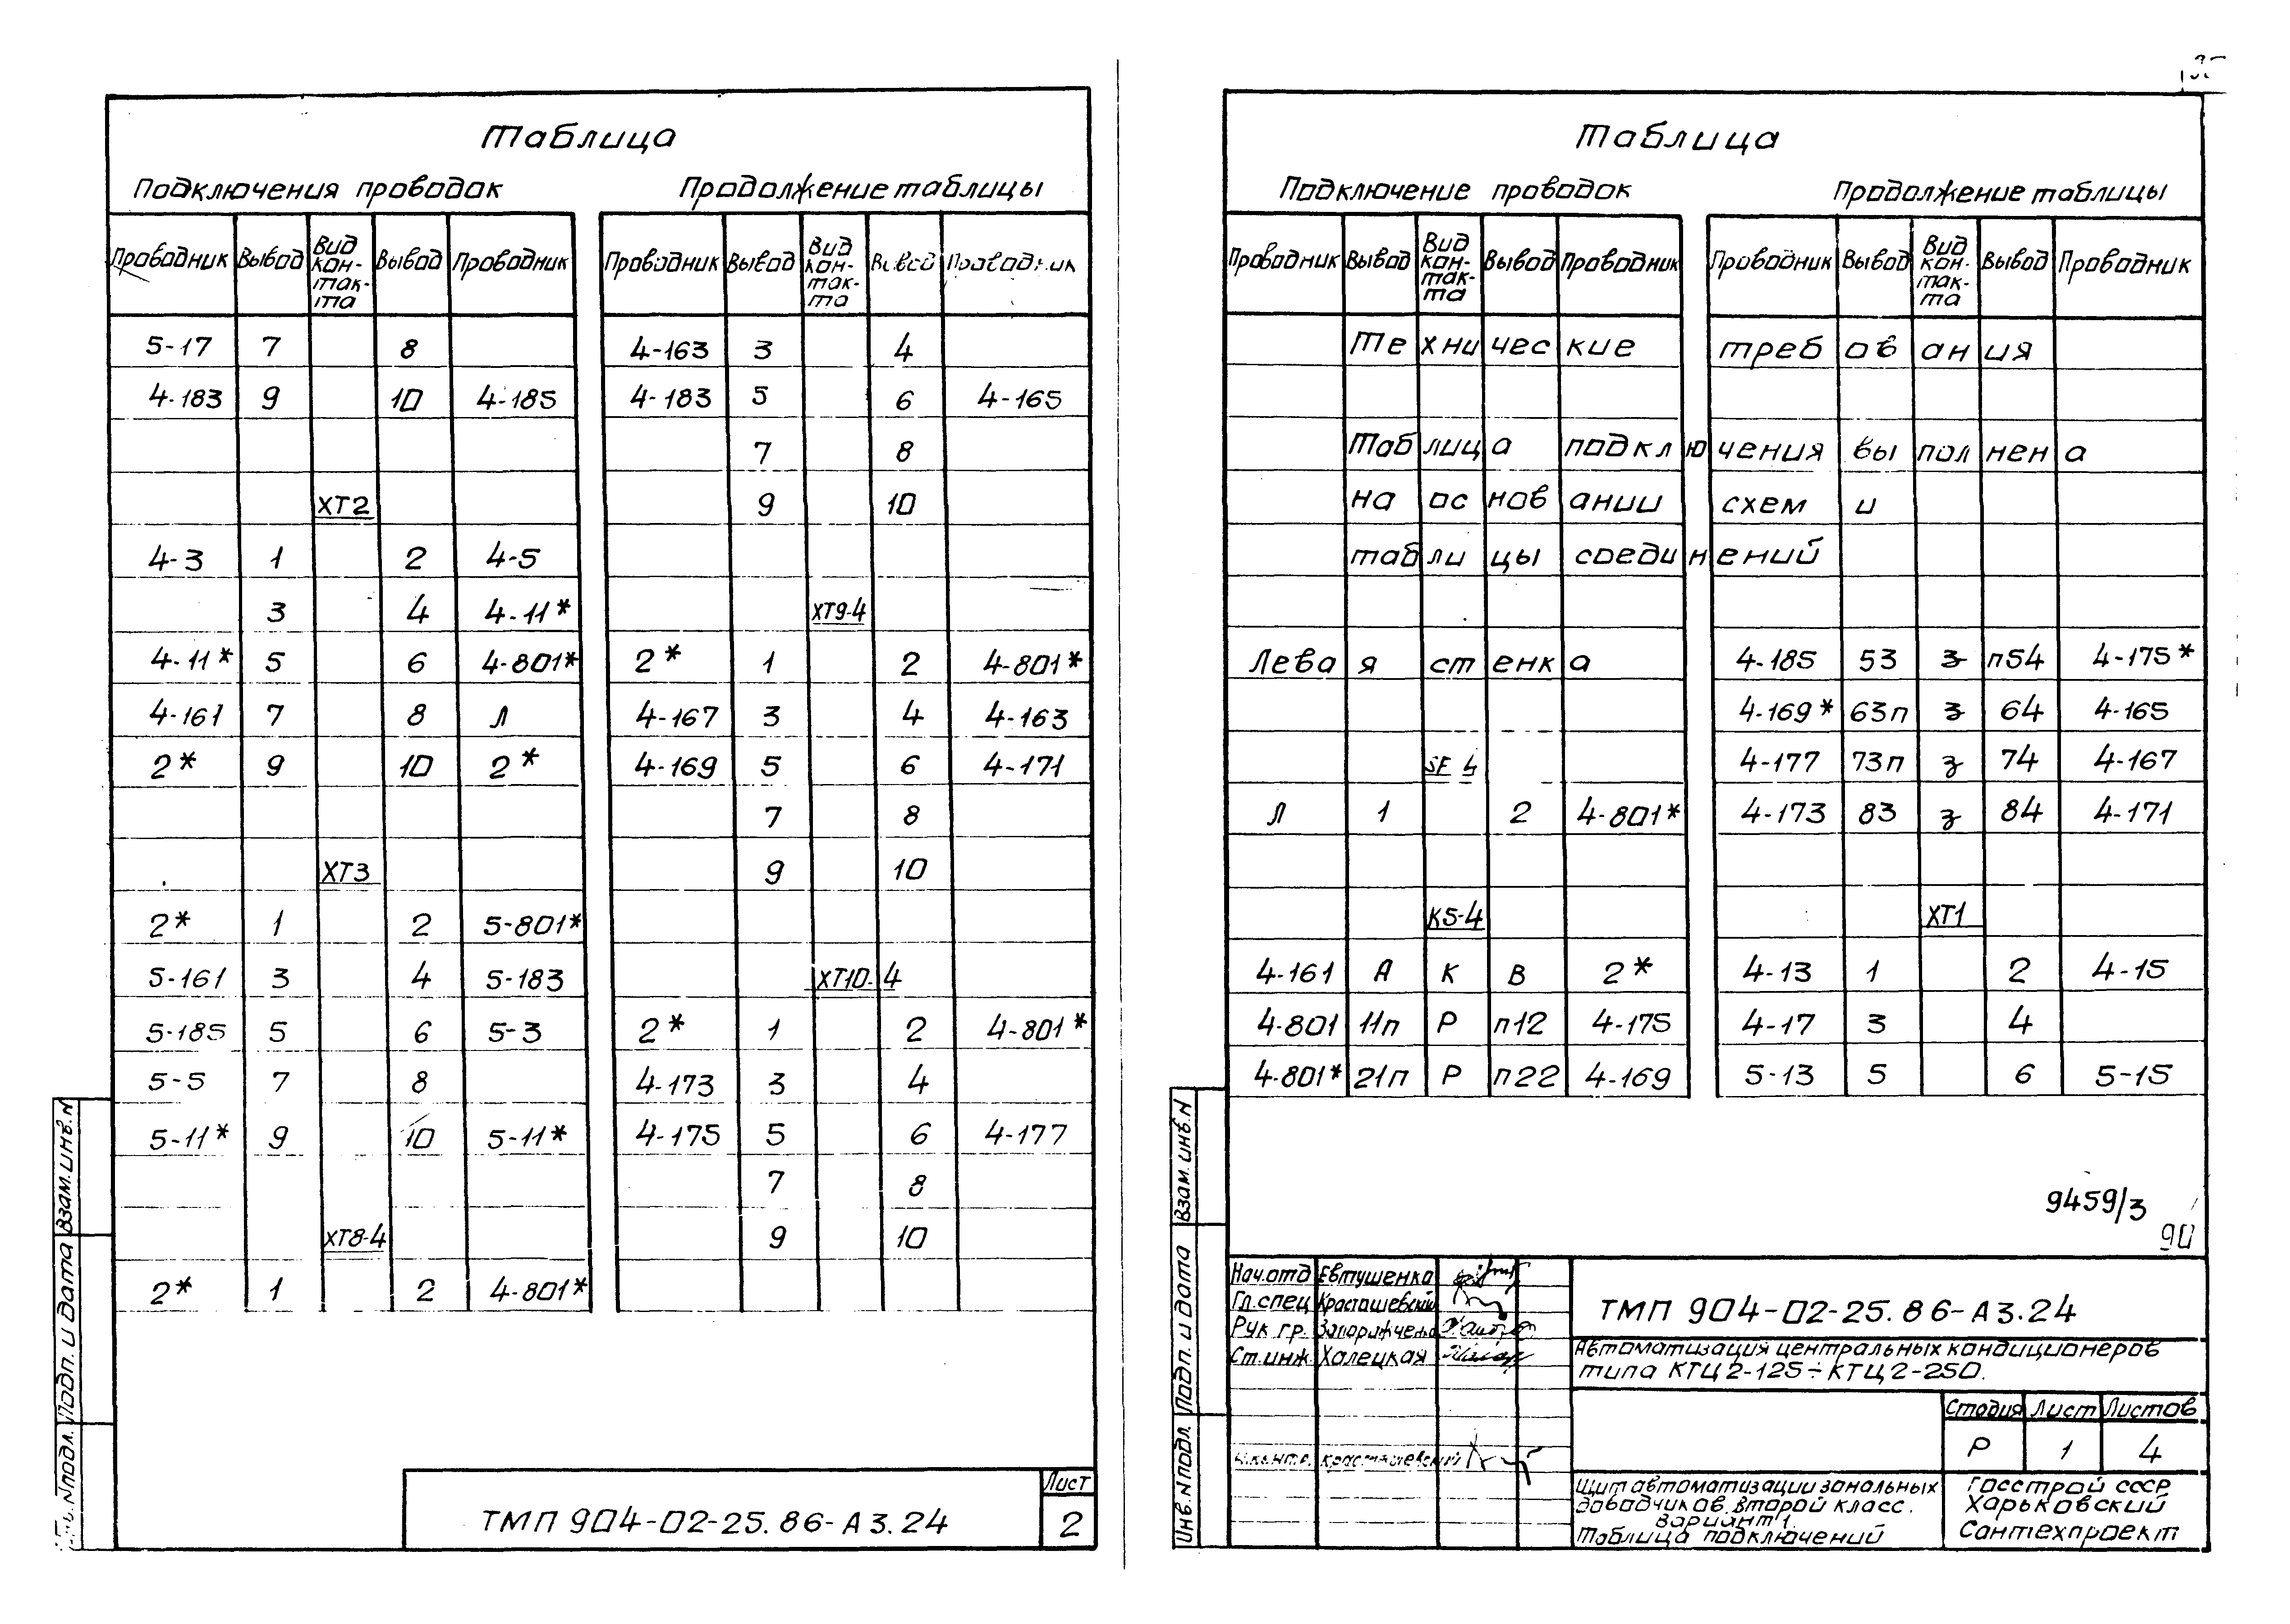 Таблица
Подключения проводок
Продолжение таблицы
Проводник Вывод Вид кон-так-та Вывод Проводник
5-17 7 8
4-183 9 10 4-185
ХТ2
4-3 1 2 4-5
3 4 4-11*
4-11* 5 6 4-801*
4-161 7 8 Л
2* 9 10 2*
ХТ3
2* 1 2 5-801*
5-161 3 4 5-183
5-185 5 6 5-3
5-5 7 8
5-11* 9 10 5-11*
ХТ8-4
2* 1 2 4-801*
Проводник Вывод Вид кон-так-та Вывод Проводник
4-163 3 4
4-183 5 6 4-165
7 8
9 10
ХТ9-4
2* 1 2 4-801*
4-167 3 4 4-163
4-169 5 6 4-171
7 8
9 10
ХТ10-4
2* 1 2 4-801*
4-173 3 4
4-175 5 6 4-177
7 8
9 10
Взам. инв. N
Подп. и дата
N подл.
ТМП 904-02-25.86-А3.24
Лист
2
Таблица
Подключение проводок
Продолжение таблицы
Проводник Вывод Вид кон-так-та Вывод Проводник
Проводник Вывод Вид кон-так-та Вывод Проводник
Технические требования
Таблица подключения выполнена
на основании схем и
таблицы соединений
Левая стенка
SF 4
Л 1 2 4-801*
К5-4
4-161 А К В 2*
4-801 11п Р п12 4-175
4-801* 21п Р п22 4-169
4-185 53 з п54 4-175*
4-169* 63п з 64 4-165
4-177 73п з 74 4-167
4-173 83 з 84 4-171
ХТ1
4-13 1 2 4-15
4-17 3 4
5-13 5 6 5-15
9459/3
90
Взам. инв. N
Подп. и дата
Инв. N подл.
Нач.отд Евтушенко
Гл.спец Красташевский
Рук гр. Запорижченко
Ст.инж. Халецкая
Н.контр. Красташевский
ТМП 904-02-25.86-А3.24
Автоматизация центральных кондиционеров
типа КТЦ2-125÷КТЦ2-250.
Стадия Лист Листов
Р 1 4
Щит автоматизации зональных
доводчиков. Второй класс.
Вариант 1.
Таблица подключений
Госстрой СССР
Харьковский
Сантехпроект